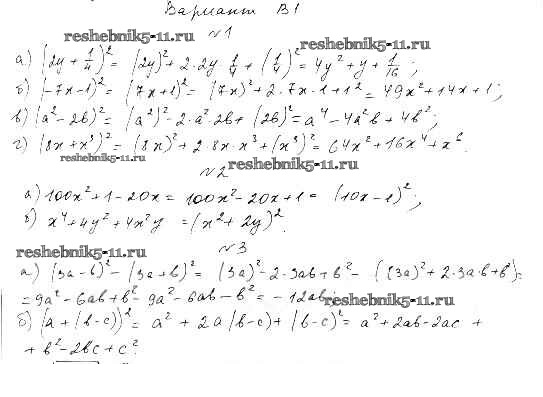 Вариант В1
reshebnik5-11.ru
№1
reshebnik5-11.ru
а) (2y + 1/4)² = (2y)² + 2·2y 1/4 + (1/4)² = 4y² + y + 1/16;
б) (-7x-1)² = (7x+1)² = (7x)² + 2·7x·1 + 1² = 49x² + 14x + 1;
в) (a² - 2b)² = (a²)² - 2·a²·2b + (2b)² = a⁴ - 4a²b + 4b²;
г) (8x + x³)² = (8x)² + 2·8x·x³ + (x³)² = 64x² + 16x⁴ + x⁶.
reshebnik5-11.ru
№2
reshebnik5-11.ru
а) 100x² + 1 - 20x = 100x² - 20x + 1 = (10x - 1)²;
б) x⁴ + 4y² + 4x²y = (x² + 2y)².
reshebnik5-11.ru
№3
а) (3a - b)² - (3a + b)² = (3a)² - 2·3ab + b² - ((3a)² + 2·3a·b + b²) =
= 9a² - 6ab + b² - 9a² - 6ab - b² = -12ab;
reshebnik5-11.ru
б) (a + (b-c))² = a² + 2a(b-c) + (b-c)² = a² + 2ab - 2ac +
+ b² - 2bc + c².